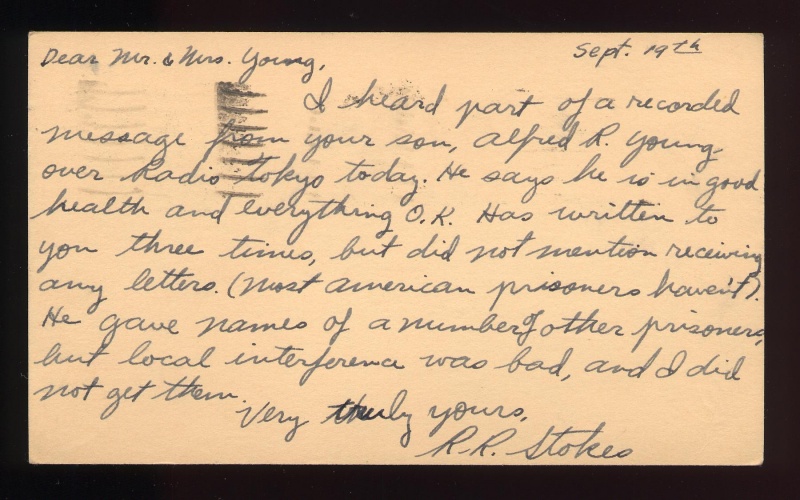 Sept. 19th
Dear Mr. & Mrs. Young,
I heard part of a recorded
message from your son, Alfred R. Young,
over Radio Tokyo today. He says he is in good
health and everything O.K. Has written to
you three times, but did not mention receiving
any letters. (Most American prisoners haven't).
He gave names of a number of other prisoners,
but local interference was bad, and I did
not get them.
Very truly yours,
R.R. Stokes